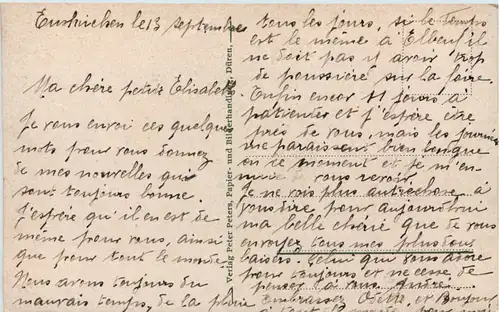 Euskirchen le 13 septembre
Ma chère petite Elisabeth
Je vous envoi ces quelque
mots pour vous donnez
de mes nouvelles qui
sont toujours bonne.
J'espère qu'il en est de
même pour vous, ainsi
que pour tout le monde
Nous avons toujours du
mauvais temps, de la pluie
Verlag Peter Peters, Papier- und Bilderhandlung, Düren.
tous les jours, si le Temps
est le même à Elbeuf il
ne doit pas y avoir trop
de poussière sur la foire.
Enfin encor 11 jours à
patienter et j'espère être
près de vous, mais les journées
me paraissent bien longue
en ce moment et je m'en
vous revoir.
Je ne vois plus autrechose à
vous dire pour aujourd'hui
ma belle chérie que de vous
envoyez tous mes plus doux
baisers. Celui qui vous adore
pour toujours et ne cesse de
penser à vous André.
Embrassez Odette et Bonjour
à tout le monde